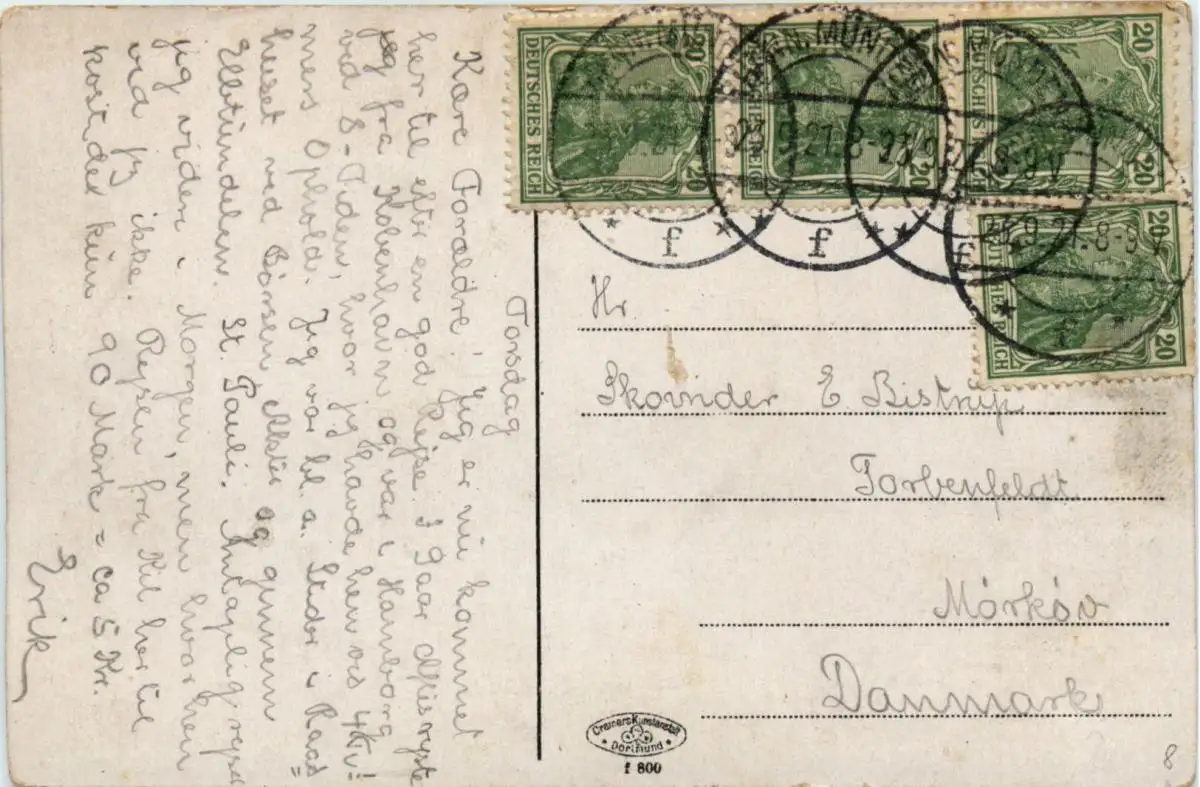 Torsdag
Kære Forældre! Jeg er nu kommet
her til efter en god Rejse. I Gaar Aftes rejste
jeg fra København og var i Hamborg
ved 8-Tiden, hvor jeg havde hen ved 4 Tiv!
mers Ophold. Jeg var bl. a. Stedr i Raad=
huset ved Börsen Alster og gennem
Elbtundelen. St. Pauli. Antagelig rejser
jeg viden i Morgen, men hvor hen
vid jeg ikke. Rejsen fra Kil her til
kostdet kun 90 Mark = ca 5 Kr.
Erik
DEUTSCHES REICH
20
20
DEUTSCHES REICH
20
DEUTSCHES REICH
20
20
DEUTSCHES REICH
20
20
23.9.21.8-9V
f
f
f
Hr.
Skovrider E. Bistrup
Torbenfeldt
Mörköv
Danmark
Cramers Kunstanstalt
Dortmund
f 800
8